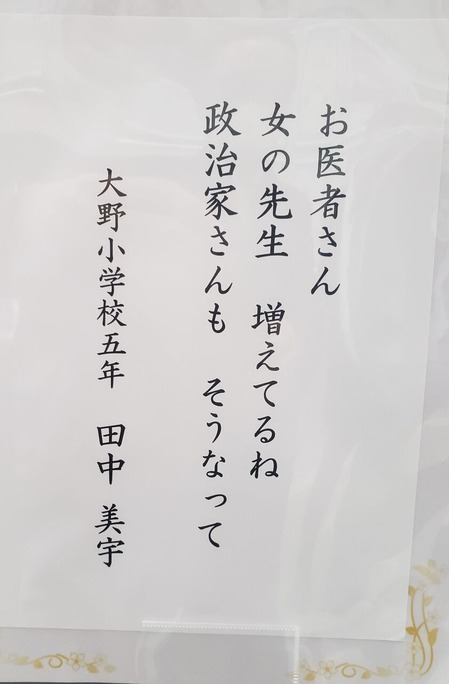 お医者さん
女の先生　増えてるね
政治家さんも　そうなって
大野小学校五年　田中　美宇